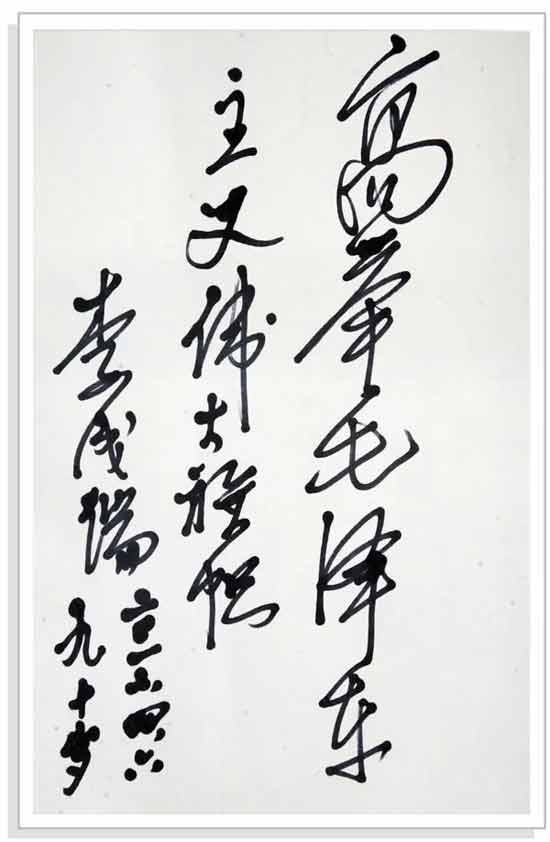 高举毛泽东
主义伟大旗帜
李成瑞
二〇一二、四、六
九十岁